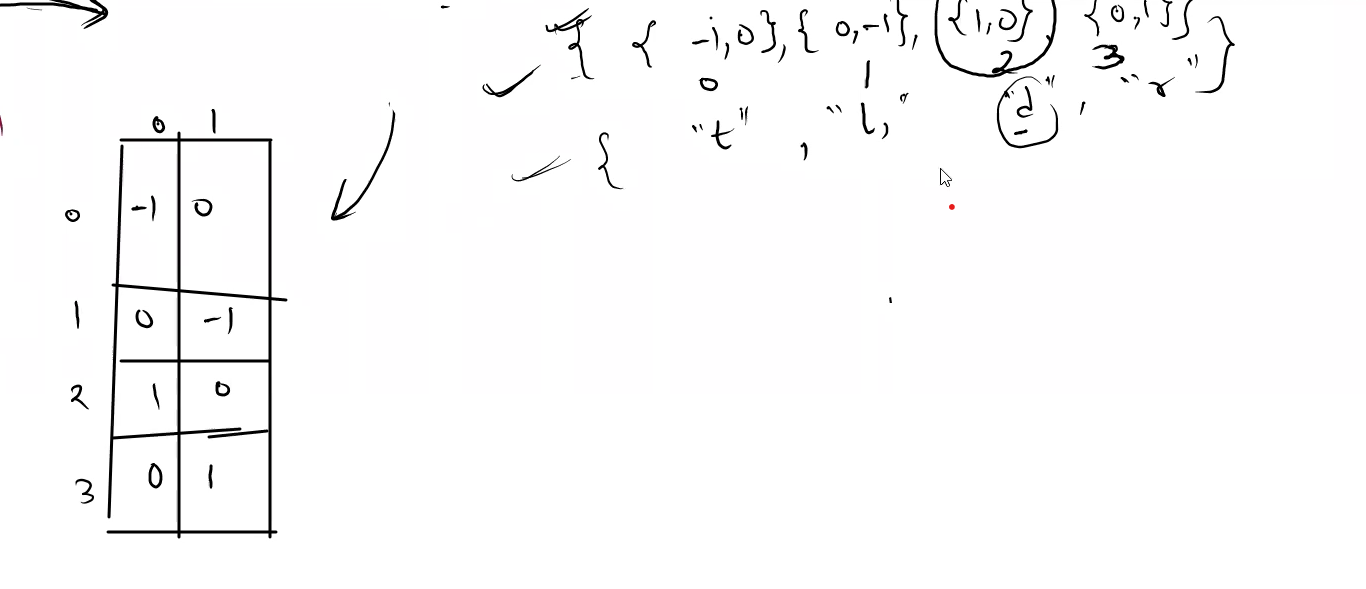 { { -1,0},{ 0,-1}, {1,0}, {0,1}}
0 1 2 3
{ "t" , "l," "d", "r" }
0 1
0 -1 0
1 0 -1
2 1 0
3 0 1